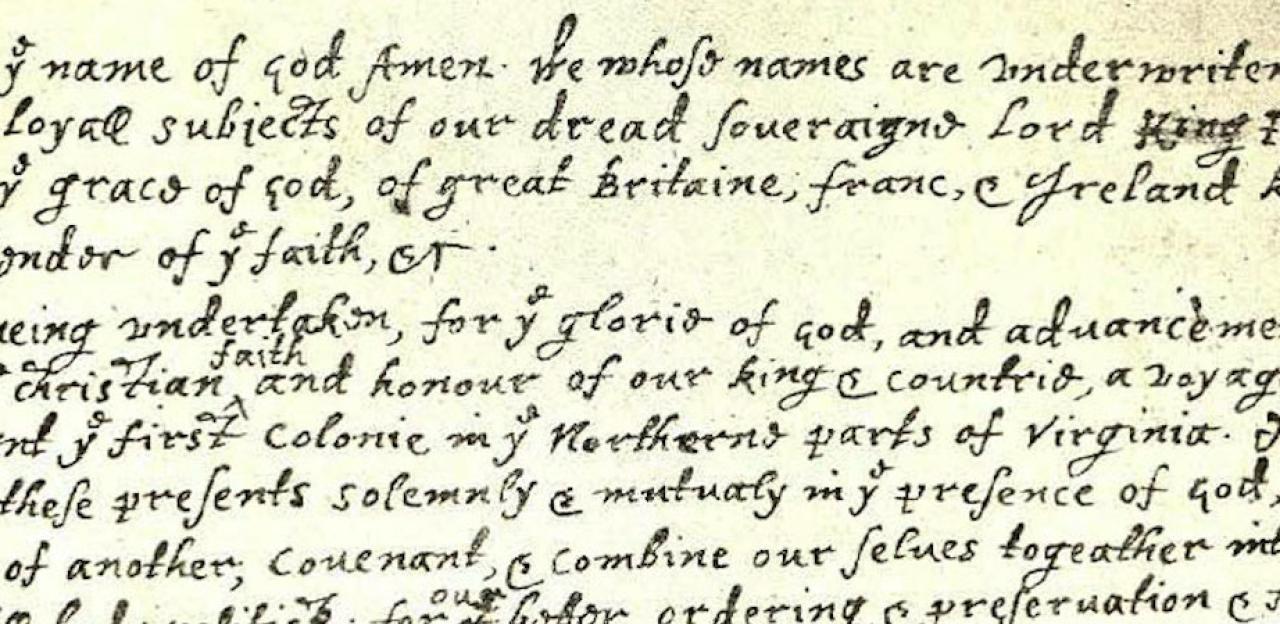 yͤ name of god Amen. We whose names are vnderwriten
loyall subjects of our dread soueraigne Lord King
yͤ grace of god, of great Britaine, franc, & Ireland
ender of yͤ faith, &c.
ueing vndertaken, for yͤ glorie of god, and aduancemen
christian faith and honour of our king & countrie, a voyag
nt yͤ first colonie in yͤ Northerne parts of Virginia.
these presents solemnly & mutualy in yͤ presence of god,
of another, couenant, & combine our selues togeather int
politick; for our better ordering & preseruation &